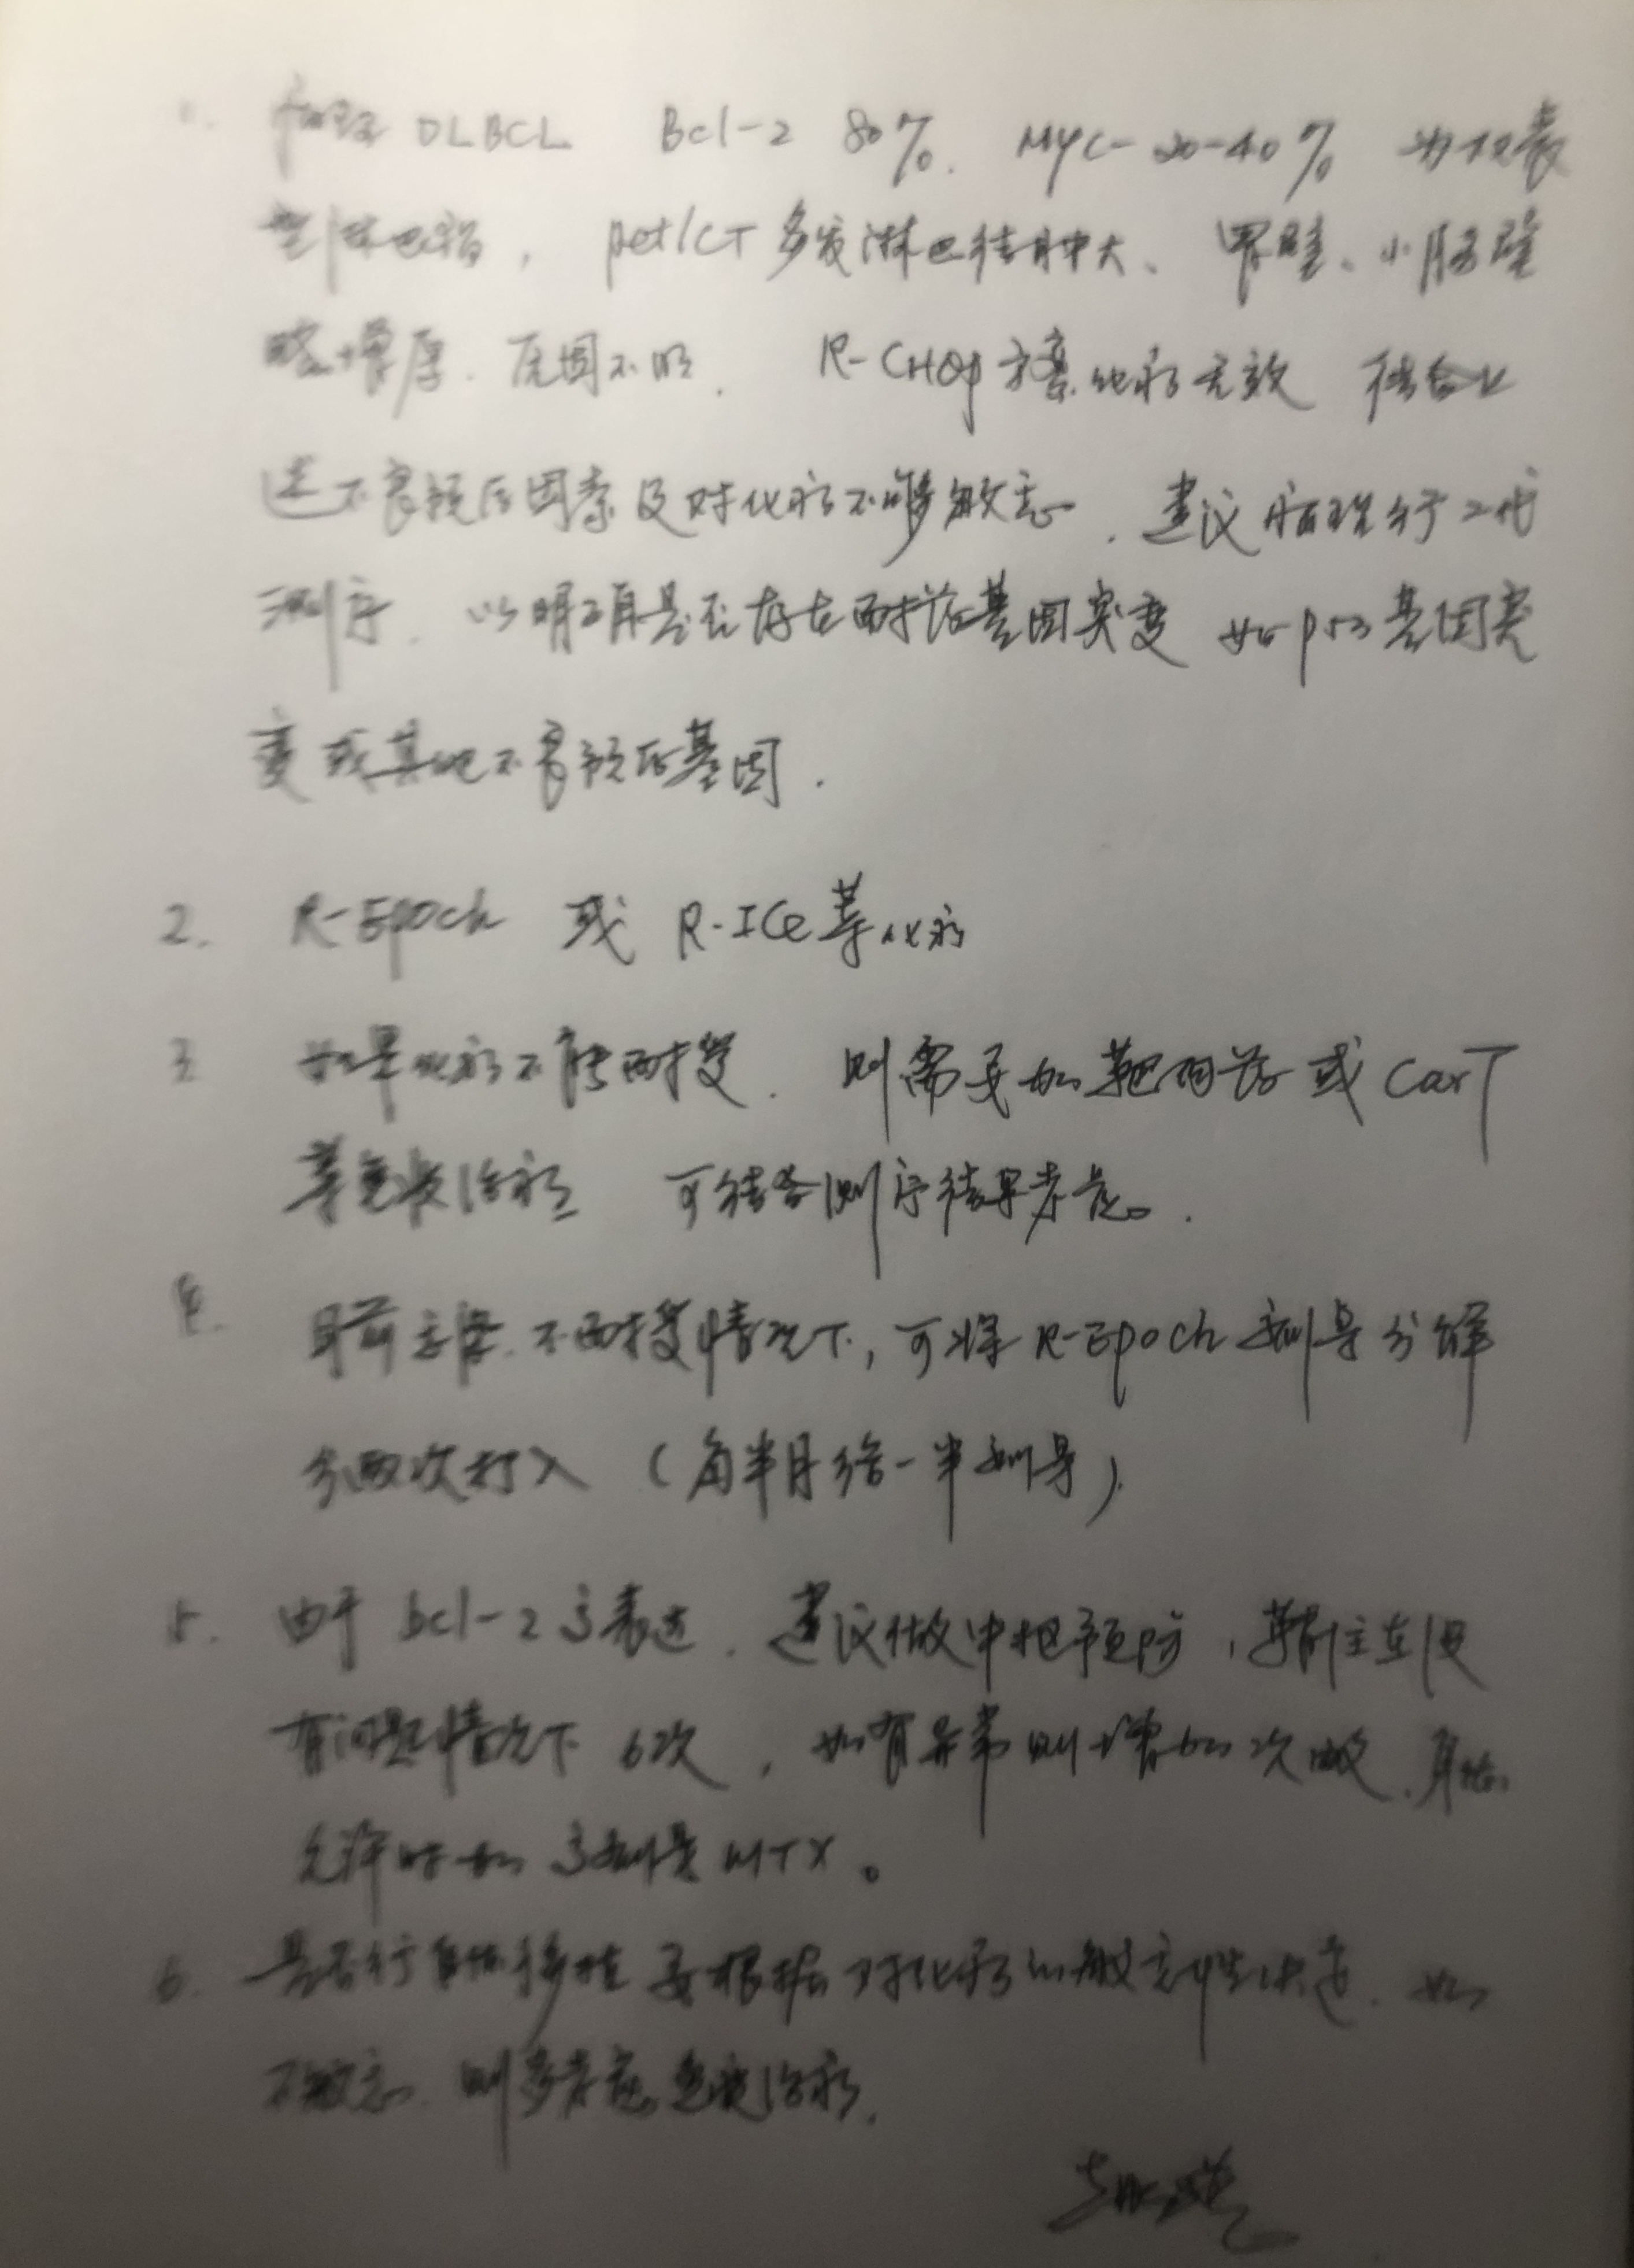 1. 病理 DLBCL Bcl-2 80%. MYC-20-40% 为双表
型淋巴瘤, pet/CT 多发淋巴结肿大、胃壁、小肠壁
略增厚. 原因不明. R-CHOP方案化疗无效 结合上
述不良预后因素及对化疗不够敏感. 建议病理行二代
测序. 以明确是否存在耐药基因突变 如p53基因突
变或其他不良预后基因.
2. R-Epoch 或 R-ICE等化疗
3. 如果化疗不能耐受. 则需要加靶向药或 CarT
等免疫治疗 可结合测序结果考虑.
目前 不耐受情况下, 可将 R-Epoch 剂量分解
分两次打入 (每半月给一半剂量).
5. 由于 bcl-2高表达. 建议做中枢预防, 鞘注在没
有问题情况下 6次, 如有异常则增加次数. 身体
允许时加 高剂量MTX。
6. 是否行自体移植 要根据对化疗的敏感性决定. 如
不敏感. 则多考虑免疫治疗.